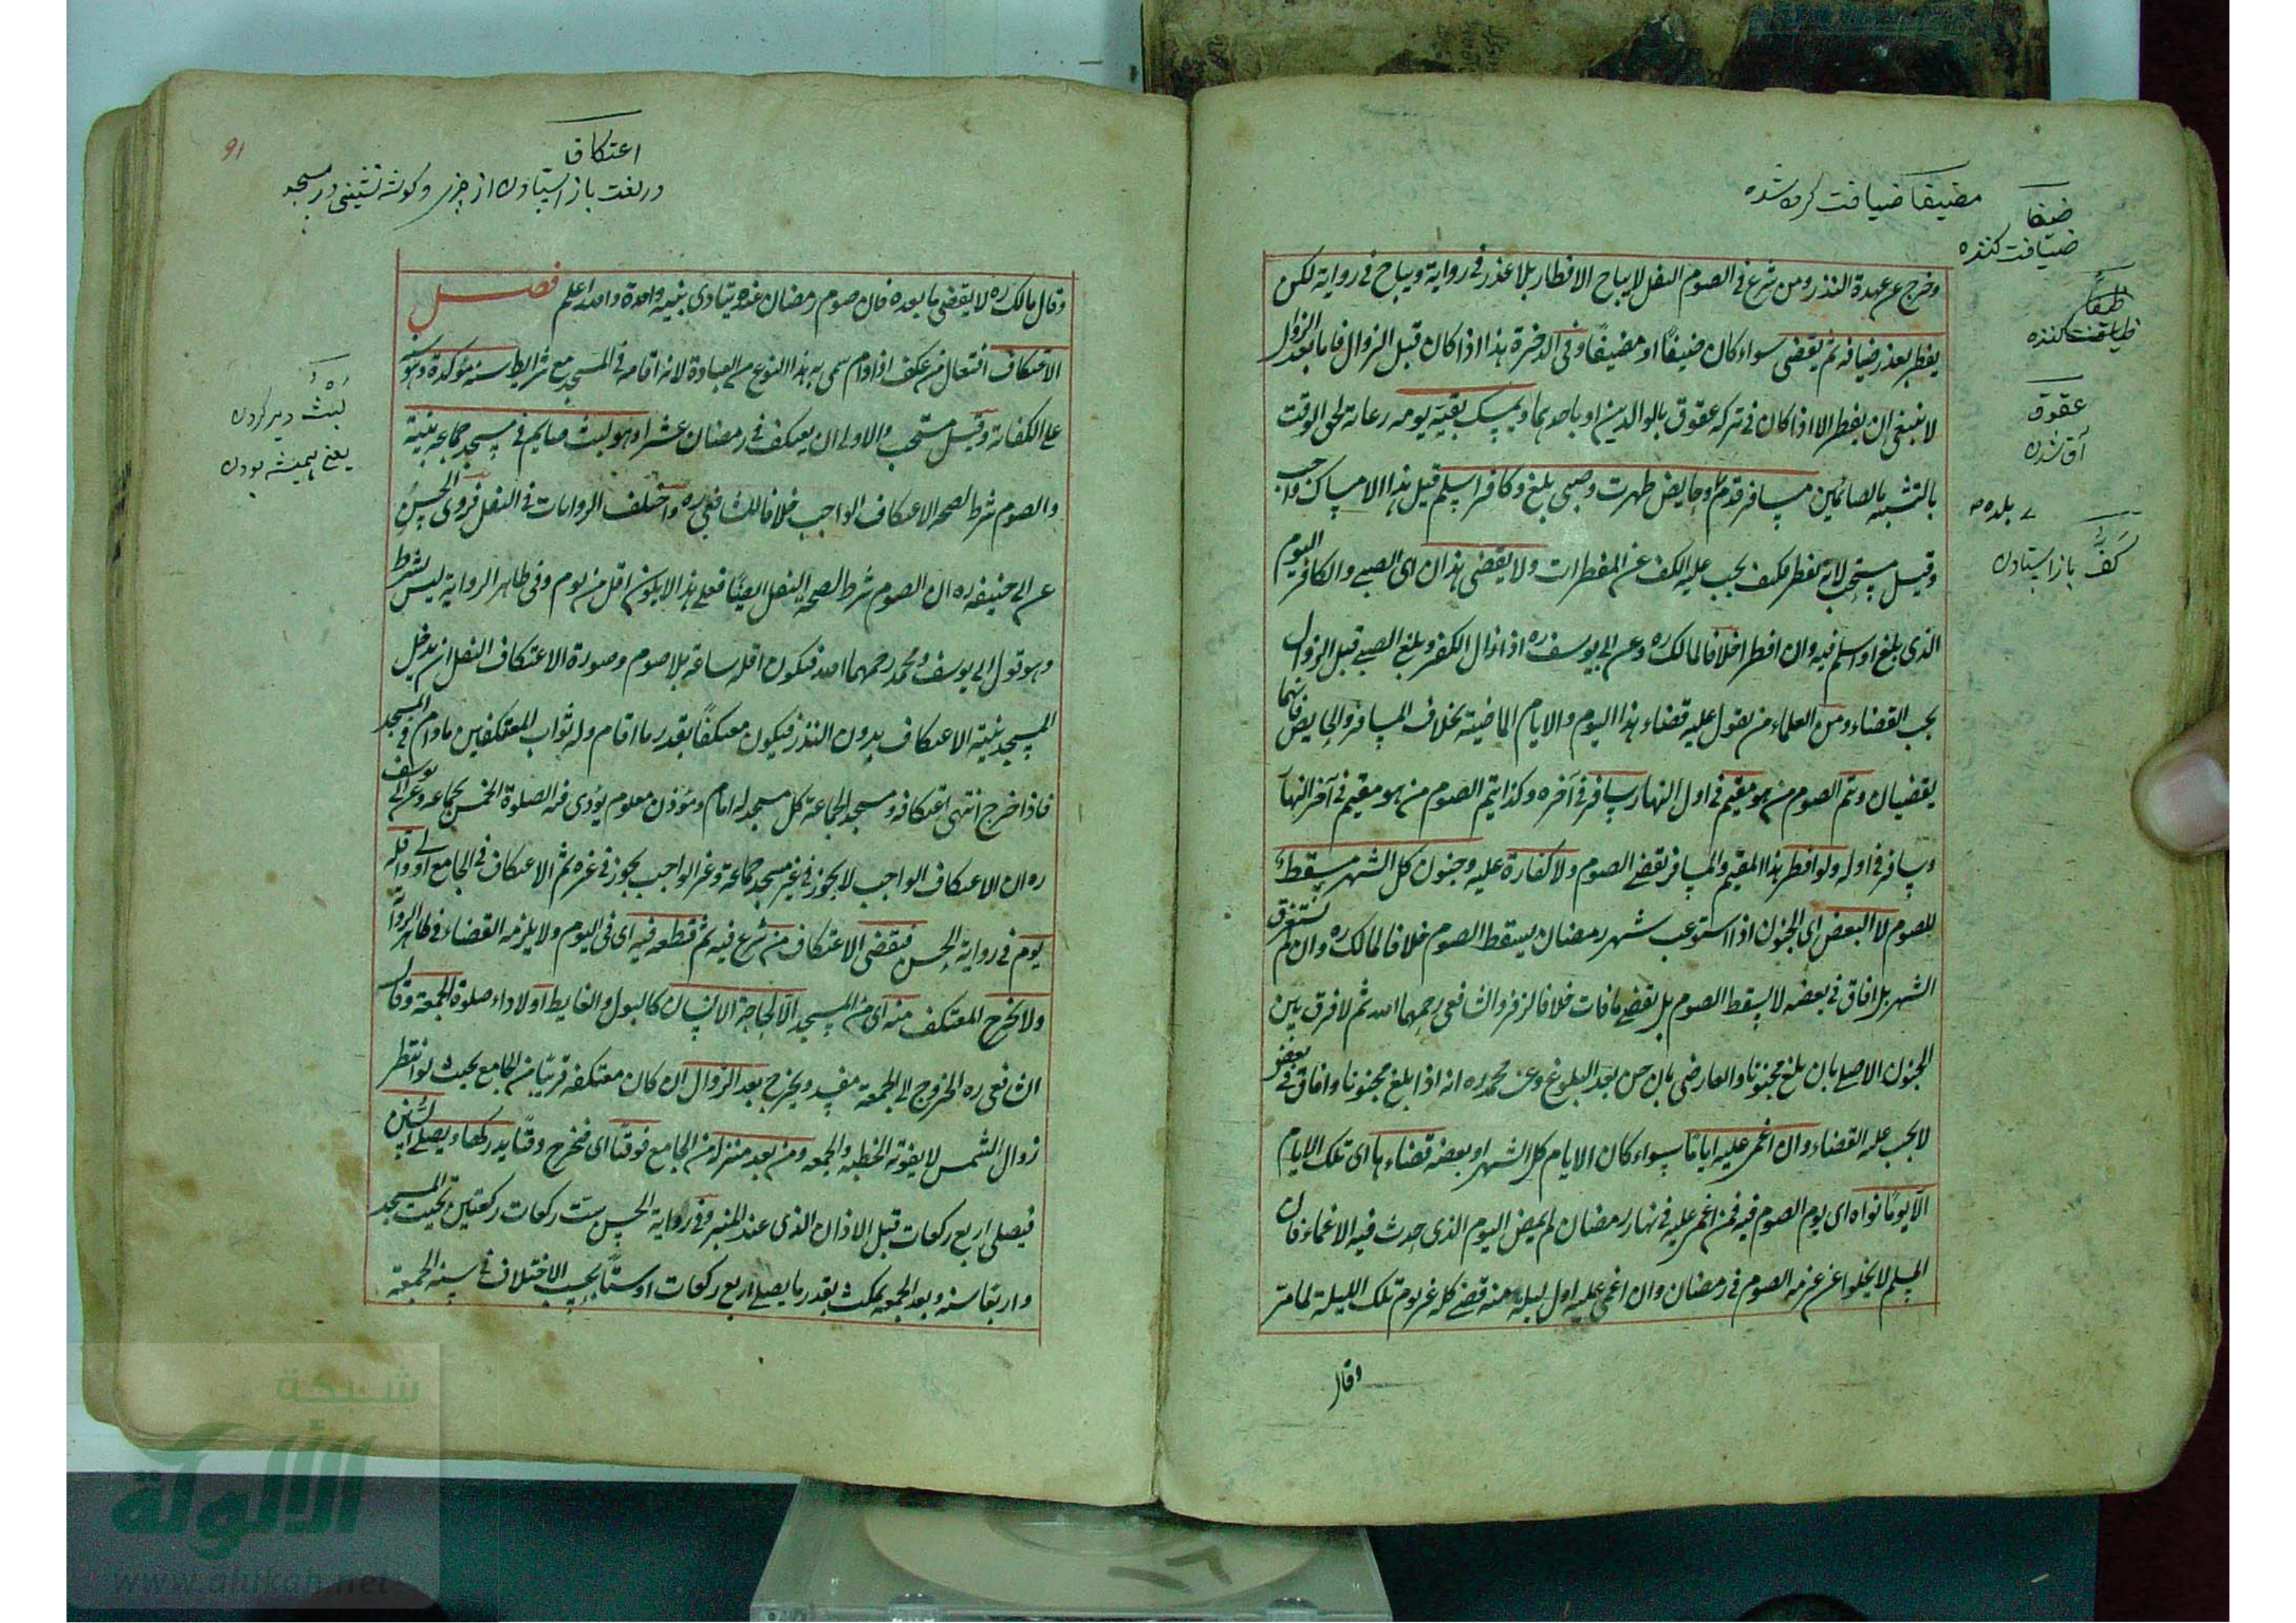 مضيفا ضيافت كرده شده
ضيفا
ضيافت كننده
عقوق
آق شدن
بلده
كفّ
باز استادن
وخرج عن عهدة النذر ومن شرع في الصوم النفل لا يباح الافطار بلا عذر في رواية ويباح في رواية لكن
يفطر بعذر ضيافه ثم يقضي سواء كان ضيفًا او مضيفًا وفي الذخيرة هذا اذا كان قبل الزوال فاما بعد الزوال
لا ينبغي ان يفطر الا اذا كان في تركه عقوق بالوالدين او باحدهما ويمسك بقية يومه رعاية لحق الوقت
بالتشبه بالصائمين مسافر قدم وحايض طهرت وصبي بلغ وكافر اسلم قيل هذا الامساك واجب
وقيل مستحب لانه مفطر فكيف يجب عليه الكف عن المفطرات ولا يقضي هذان اى الصبي والكافر اليوم
الذى بلغ او اسلم فيه وان افطرا خلافا لمالك ره وعن ابي يوسف ره اذا زال الكفر وبلغ الصبي قبل الزوال
يجب القضاء ومن العلماء من يقول عليه قضاء هذا اليوم والايام الماضية بخلاف المسافر والحايض فانهما
يقضيان ويتم الصوم من هو مقيم في اول النهار سافر في آخره وكذا يتم الصوم من هو مقيم في آخر النهار
وسافر في اوله ولو افطر هذا المقيم والمسافر يقضي الصوم ولا كفارة عليه وجنون كل الشهر مسقط
للصوم لا البعض اى الجنون اذا استوعب شهر رمضان يسقط الصوم خلافا لمالك ره وان لم يستغرق
الشهر بل افاق في بعضه لا يسقط الصوم بل يقضي ما فات خلافا لزفر والشافعي رحمهما الله ثم لا فرق بين
الجنون الاصلي بان بلغ مجنونا والعارضي بان جن بعد البلوغ وعن محمد ره انه اذا بلغ مجنونا وافاق في بعضه
لا يجب عليه القضاء وان اغمي عليه اياما سواء كان الايام كل الشهر او بعضه قضاءها اى تلك الايام
الا يومًا نواه اى يوم الصوم فيه فمن اغمي عليه في نهار رمضان لم يقض اليوم الذى حدث فيه الاغماء فان
المسلم لا يخلوا عن عزمه الصوم في رمضان وان اغمي عليه اول ليلة منه قضي كله غير يوم تلك الليلة لما مر
وقال
91
اعتكاف
در لغت باز استادن از چيز وكوشه نشيني در مسجد
لبث دير كردن
يعني هميشه بودن
وقال مالك ره لا يقضي ما بعده فان صوم رمضان عنده يتادى بنية واحدة والله اعلم فصل
الاعتكاف افتعال من عكف اذا دام سمى به هذا النوع من العبادة لانه اقامة في المسجد مع شرائط سنة مؤكدة وهو سنة
على الكفاية وقيل مستحب والاولى ان يعتكف في رمضان عشرا وهو لبث صايم في مسجد جماعة بنية
والصوم شرط لصحة الاعتكاف الواجب خلافا للشافعي ره واختلف الروايات في النفل فروى الحسن
عن ابي حنيفه ره ان الصوم شرط لصحة النفل ايضًا فعلى هذا لا يكون اقل من يوم وفي ظاهر الرواية ليس بشرط
وهو قول ابي يوسف ومحمد رحمهما الله فيكون اقله ساعة بلا صوم وصورة الاعتكاف النفل ان يدخل
المسجد بنية الاعتكاف بدون النذر فيكون معتكفًا بقدر ما اقام وله ثواب المعتكفين ما دام في المسجد
فاذا خرج انتهى اعتكافه ومسجد الجماعة كل مسجد له امام ومؤذن معلوم يؤدى فيه الصلوة الخمس بجماعه وعن ابي يوسف
ره ان الاعتكاف الواجب لا يجوز في غير مسجد جماعة وغير الواجب يجوز في غيره ثم الاعتكاف في الجامع اولى واقله
يوم في رواية الحسن فيقضى الاعتكاف من شرع فيه ثم قطعه فيه اى في اليوم ولا يلزمه القضاء في ظاهر الرواية
ولا يخرج المعتكف منه اى من المسجد الا لحاجة الانسان كالبول والغايط او لاداء صلوة الجمعة وقال
الشافعي ره الخروج الى الجمعة مفسد ويخرج بعد الزوال ان كان معتكفه قريبًا من الجامع بحيث لو انتظر
زوال الشمس لا يفوته الخطبه والجمعه ومن بعد منزله من الجامع فوقتًا اى فيخرج وقتًا يدركها ويصلي السنن
فيصلي اربع ركعات قبل الاذان الذى عند المنبر وفي رواية الحسن ست ركعات ركعتين تحية المسجد
واربعا سنه وبعد الجمعه يمكث بقدر ما يصلي اربع ركعات او ستًا بحسب الاختلاف في سنة الجمعة
شبكة
الألوكة
www.alukah.net